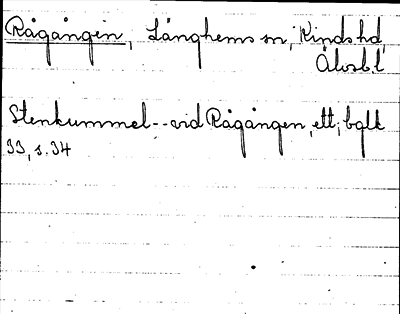 Rågången, Långhems sn, Kinds hd
Älvsb.l
Stenkummel -- vid Rågången, ett, bglk
33, s. 34